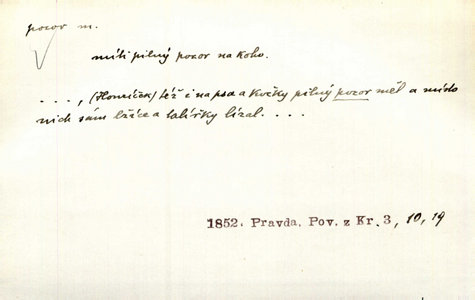 pozor m.
míti pilný pozor na koho.
. . . , (Honzíček) též i na psa a kočky pilný pozor měl a místo
nich sám lžíce a talířky lízal. . . .
1852. Pravda. Pov. z Kr. 3, 10, 19